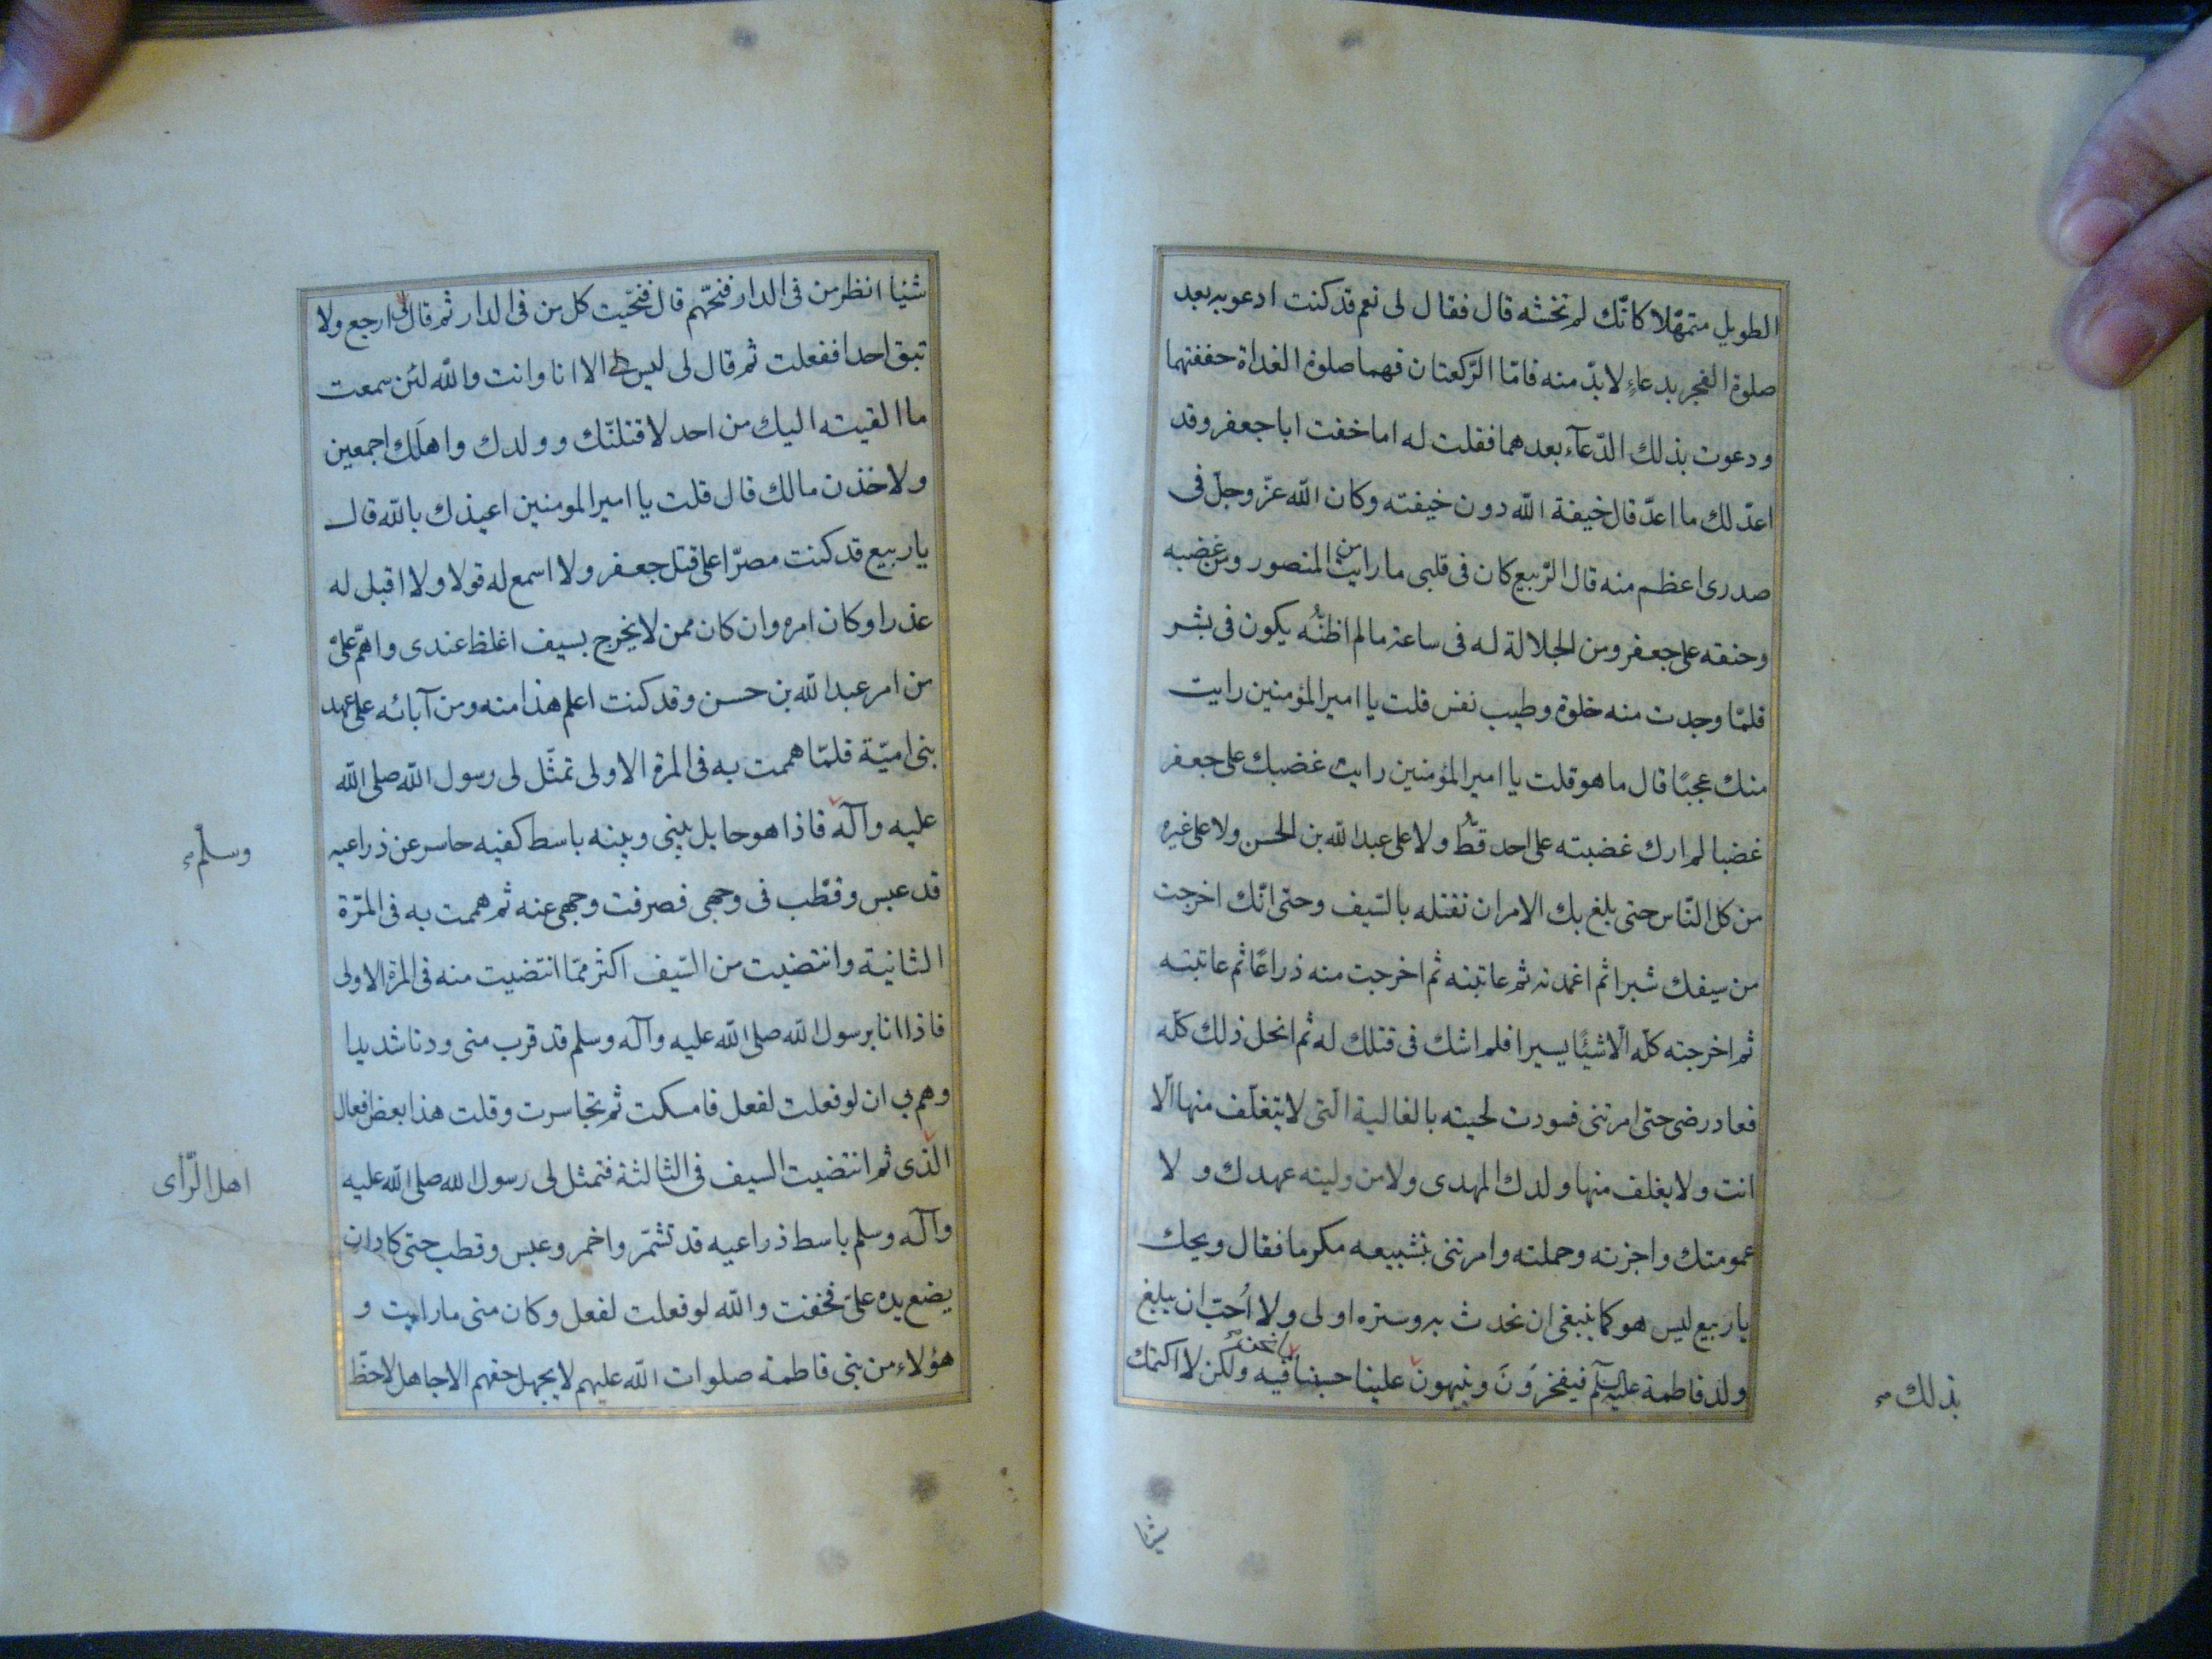 الطويل متمهّلا كانّك لم تخشه قال فقال لى نعم قد كنت ادعو به بعد
صلوة الفجر بدعاءٍ لا بدّ منه فامّا الرّكعتان فهما صلوة الغداة خففتهما
ودعوت بذلك الدّعآء بعدهما فقلت له اما خفت ابا جعفر وقد
اعدّ لك ما اعدّ قال خيفة الله دون خيفته وكان الله عزّ وجلّ فى
صدرى اعظم منه قال الرّبيع كان فى قلبى ما رايت من المنصور ومن غضبه
وحنقه على جعفر ومن الجلالة له فى ساعة ما لم اظنّه يكون فى بشر
فلمّا وجدت منه خلوة وطيب نفس قلت يا امير المؤمنين رايت
منك عجبًا قال ما هو قلت يا امير المؤمنين رايت غضبك على جعفر
غضبا لم ارك غضبته على احد قطّ ولا على عبد الله بن الحسن ولا على غيره
من كل النّاس حتى بلغ بك الامر ان تقتله بالسّيف وحتى انّك اخرجت
من سيفك شبرا ثم اغمدته ثم عاتبته ثم اخرجت منه ذراعًا ثم عاتبته
ثم اخرجته كلّه الّا شيئًا يسيرا فلم اشك فى قتلك له ثم انحل ذلك كلّه
فعاد رضى حتى امرتنى فسودت لحيته بالغالية الّتى لا يتغلّف منها الّا
انت ولا يغلف منها ولدك المهدى ولا من وليته عهدك ولا
عمومتك واجزته وحملته وامرتنى بتشييعه مكرما فقال ويحك
يا ربيع ليس هو كما ينبغى ان تحدث به وستره اولى ولا اُحبّ ان يبلغ
ولد فاطمة عليها السلم فيفخرُونَ ويتيهون علينا حسبنا ما نحن فيه ولكن لا اكتمك
بذلك
شيئا
شيئا انظر من فى الدار فنحّهم قال فنحّيت كل من فى الدار ثم قال لى ارجع ولا
تبق احدا ففعلت ثم قال لى ليس الا انا وانت والله لئن سمعت
ما القيته اليك من احد لاقتلنّك وولدك واهلَك اجمعين
ولاخذن مالك قال قلت يا امير المومنين اعيذك بالله قال
يا ربيع قد كنت مصرّا على قتل جعفر ولا اسمع له قولا ولا اقبل له
عذرا وكان امره وان كان ممن لا يخرج بسيف اغلظ عندى واهمّ علىّ
من امر عبد الله بن حسن وقد كنت اعلم هذا منه ومن آبائه على عهد
بنى اميّة فلمّا هممت به فى المرة الاولى تمثّل لى رسول الله صلى الله
عليه وآله فاذا هو حايل بينى وبينه باسط كفيه حاسر عن ذراعيه
وسلم
قد عبس وقطّب فى وجهى فصرفت وجهى عنه ثم هممت به فى المرّة
الثانية وانتضيت من السّيف اكثر ممّا انتضيت منه فى المرة الاولى
فاذا انا برسول الله صلى الله عليه وآله وسلم قد قرب منى ودنا شديدا
وهم بى ان لو فعلت لفعل فامسكت ثم تجاسرت وقلت هذا بعض افعال
الّذى ثم انتضيت السيف فى الثالثة فتمثل لى رسول الله صلى الله عليه
اهل الرّأى
وآله وسلم باسط ذراعيه قد تشمّر واحمر وعبس وقطب حتى كاد ان
يضع يده علىّ فخفت والله لو فعلت لفعل وكان منى ما رايت و
هؤلاء من بنى فاطمة صلوات الله عليهم لا يجهل حقهم الا جاهل لا حظّ